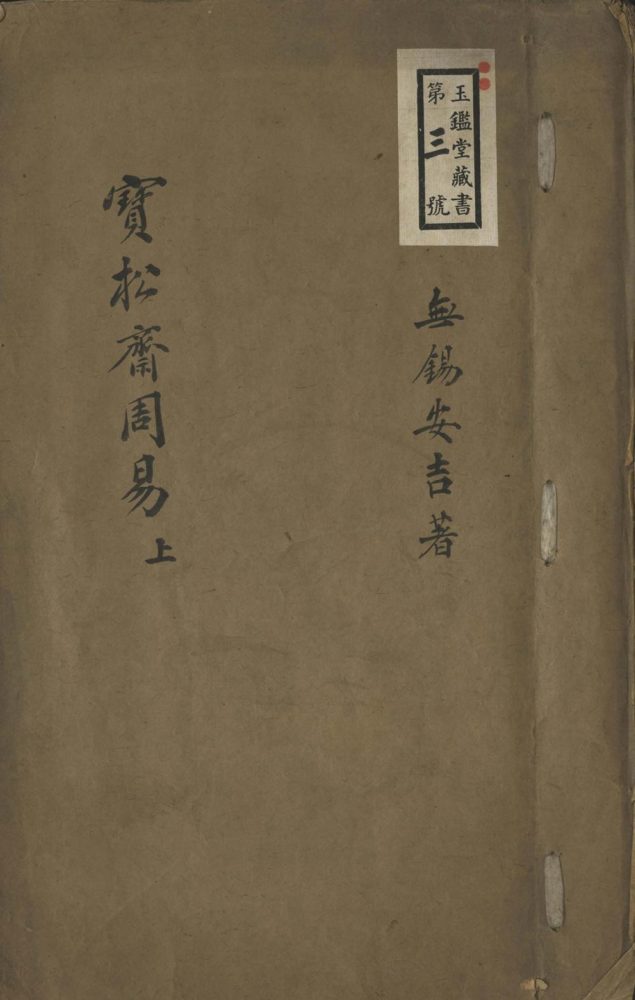 玉鑑堂藏書
第三號
無錫安吉著
寶松齋周易 上